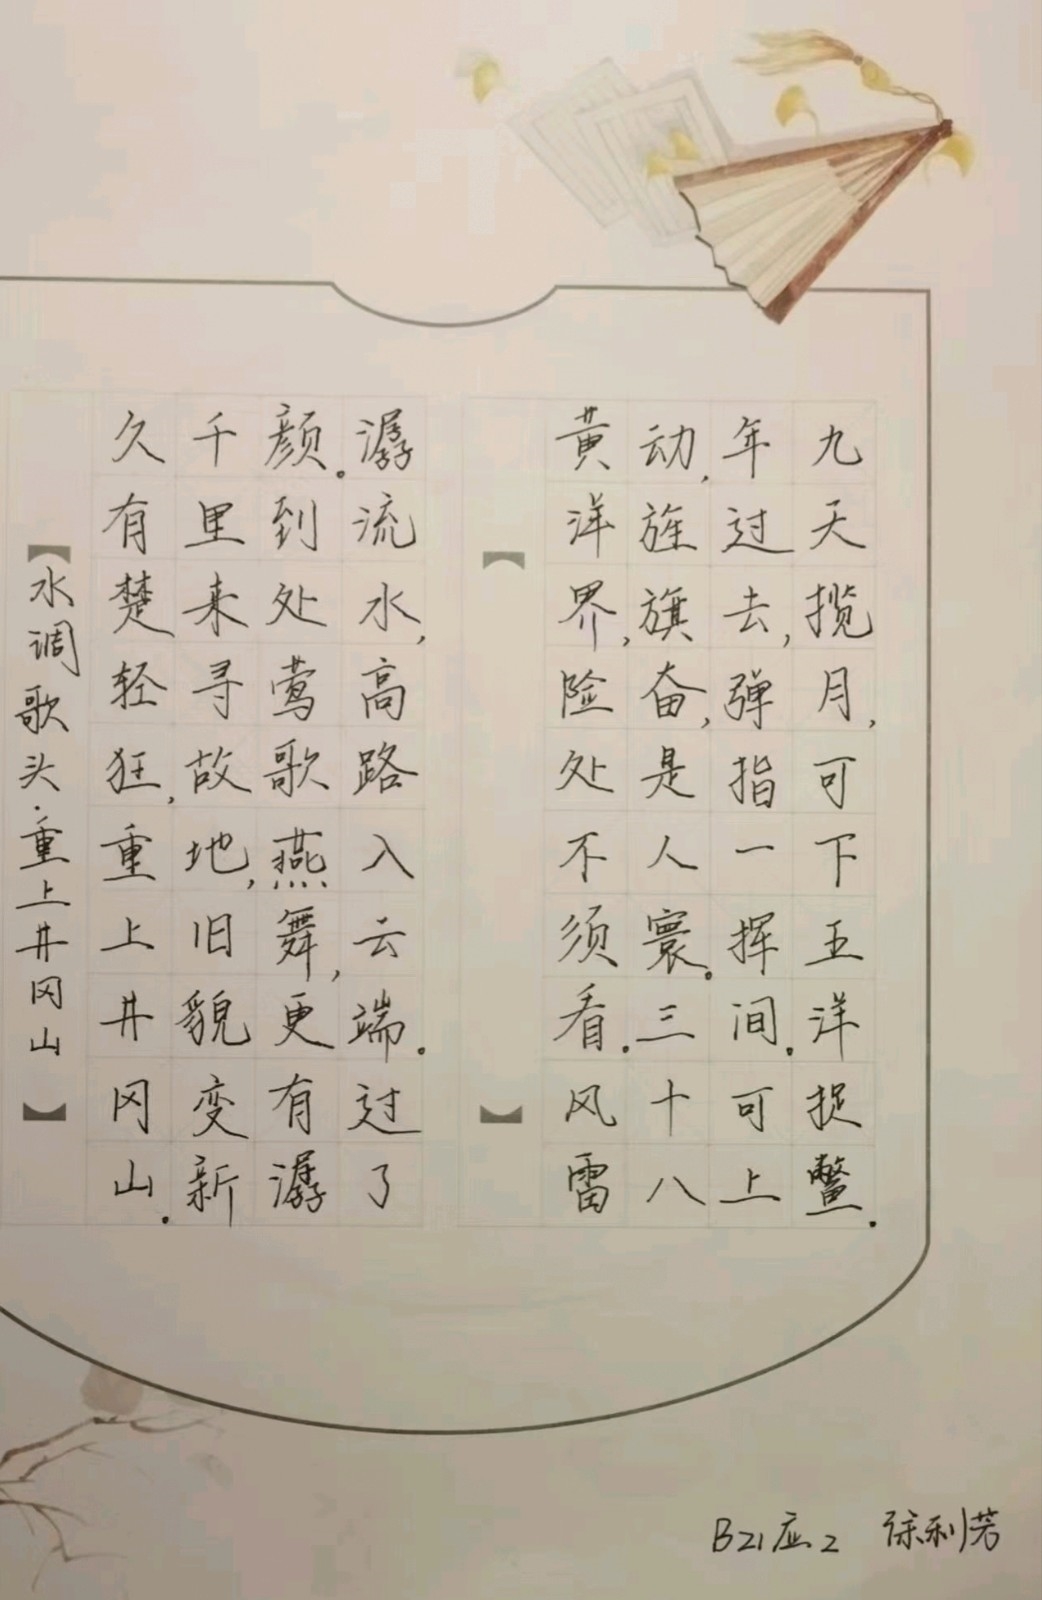 【水调歌头·重上井冈山】
久有楚轻狂,重上井冈山。
千里来寻故地,旧貌变新
颜。到处莺歌燕舞,更有潺
潺流水,高路入云端。过了
【】
黄洋界,险处不须看。风雷
动,旌旗奋,是人寰。三十八
年过去,弹指一挥间。可上
九天揽月,可下五洋捉鳖。
B21应2 徐利芳